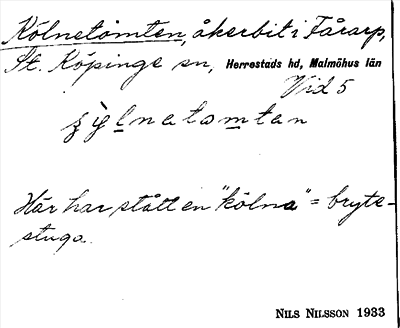 Kölnetomten, åkerbit i Fårarp,
St. Köpinge sn, Herrestads hd, Malmöhus län
Vid 5
Här har stått en "kölna" = bryte-
stuga.
NILS NILSSON 1933